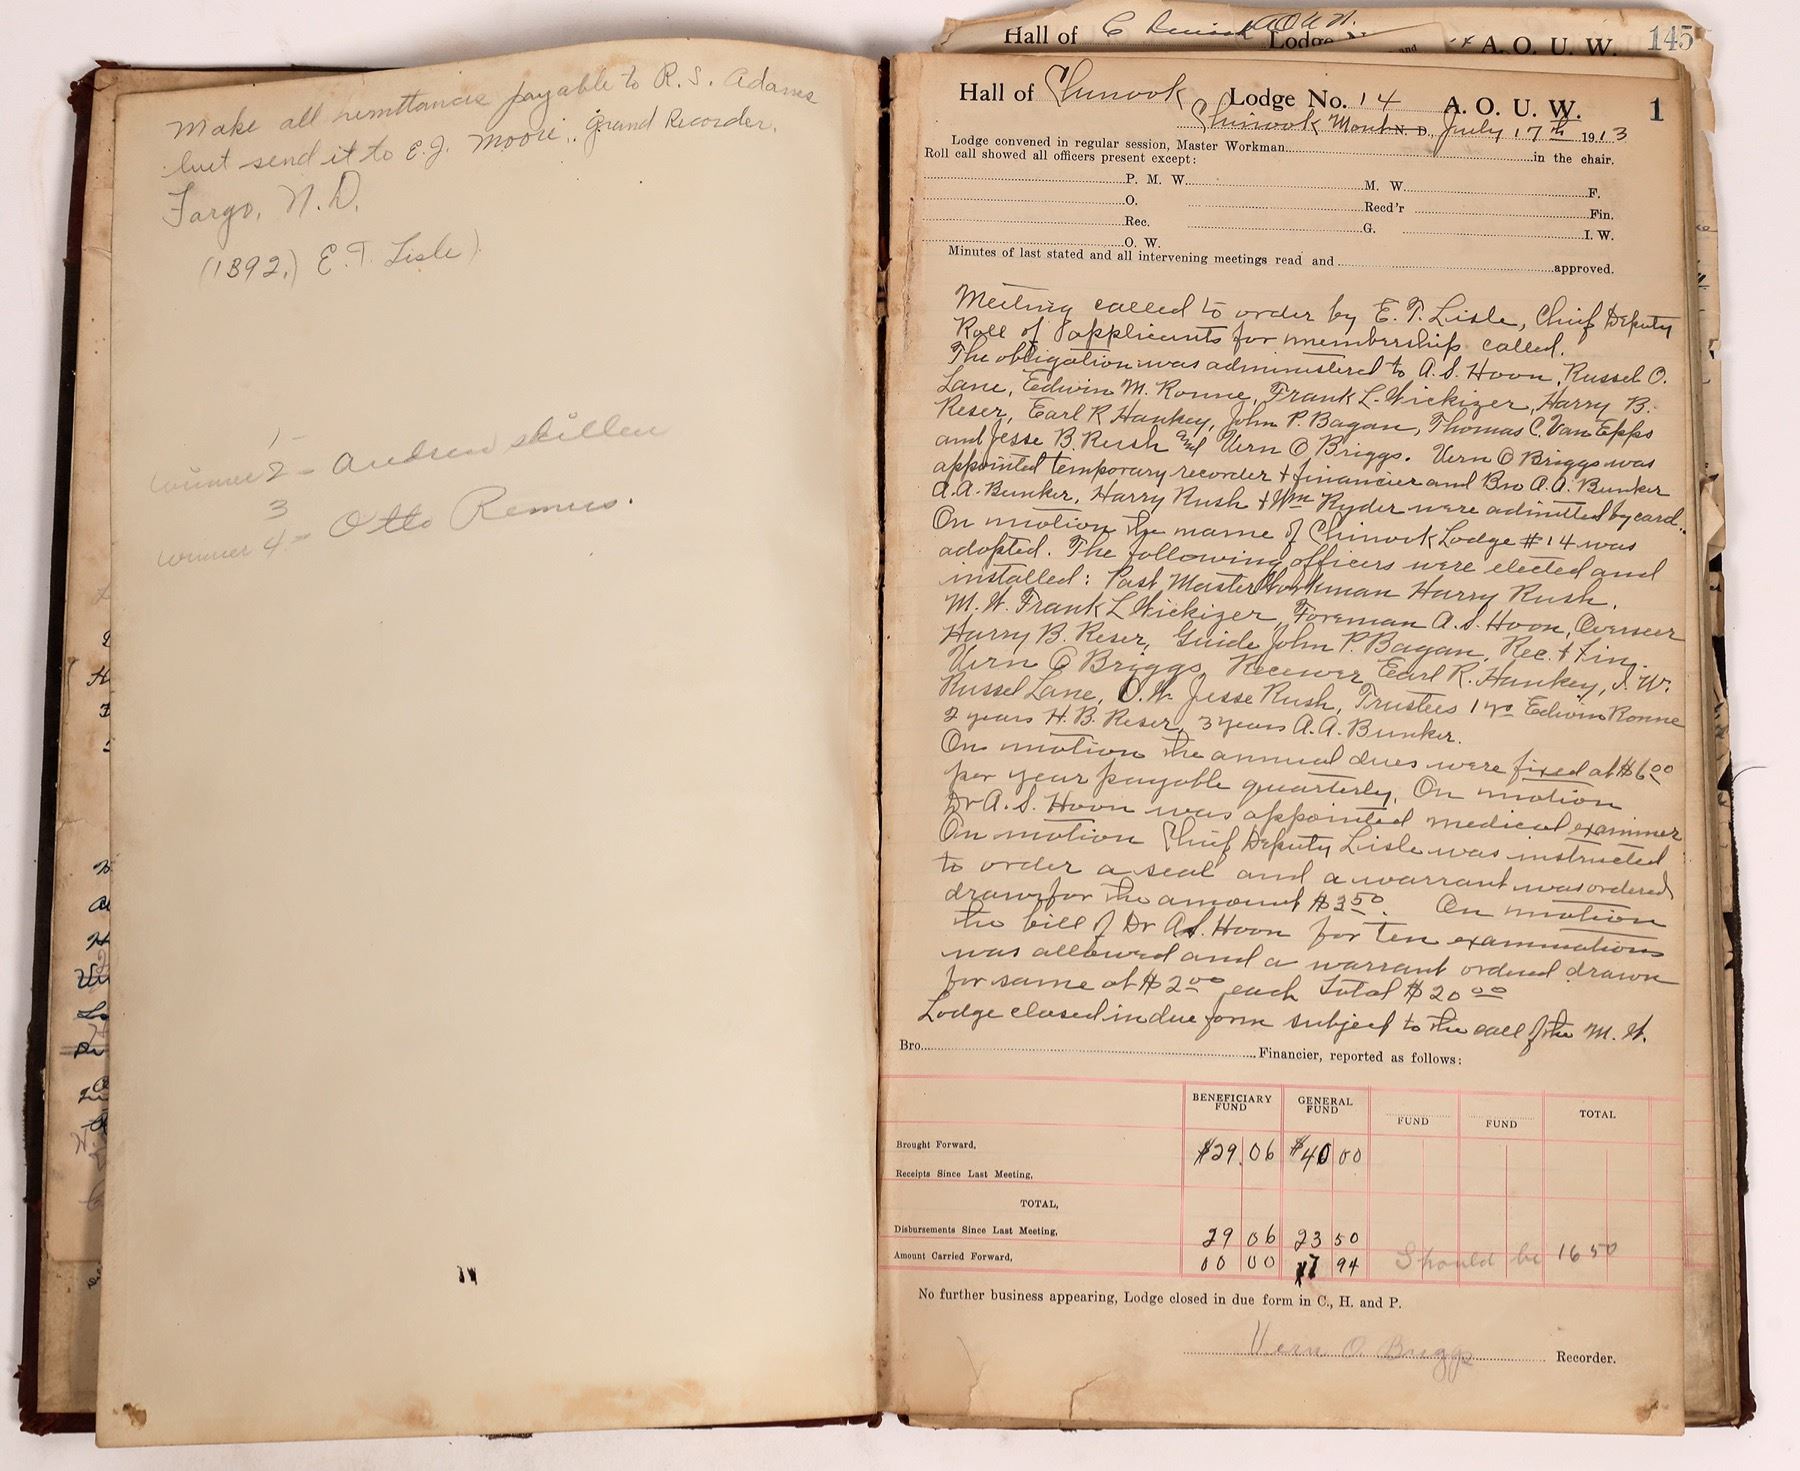 Make all remittances payable to R. S. Adams
but send it to E. J. Moore, Grand Recorder,
Fargo, N. D.
(1892,) E. T. Lisle)
1-
winner 2 - Andrew Skillen
3
winner 4 - Otto Remus.
Hall of Lodge A. O. U. W. 145
Hall of Chinook Lodge No. 14 A. O. U. W. 1
Chinook Mont N. D., July 17th 1913
Lodge convened in regular session, Master Workman in the chair.
Roll call showed all officers present except:
P. M. W. M. W. F.
O. Recd'r Fin.
Rec. G. I. W.
O. W.
Minutes of last stated and all intervening meetings read and approved.
Meeting called to order by E. T. Lisle, Chief Deputy
Roll of applicants for membership called.
The obligation was administered to A. S. Hoon, Russel O.
Lane, Edwin M. Ronne, Frank L. Wickizer, Harry B.
Reser, Earl R Hankey, John P. Bagan, Thomas C. Van Epps
and Jesse B. Rush and Vern O Briggs. Vern O Briggs was
appointed temporary recorder + financier and Bro A. A. Bunker
A. A. Bunker, Harry Rush + Wm Ryder were admitted by card.
On motion the name of Chinook Lodge #14 was
adopted. The following officers were elected and
installed: Past Master Workman Harry Rush,
M. W. Frank L Wickizer, Foreman A. S. Hoon, Overseer
Harry B. Reser, Guide John P. Bagan, Rec. + Fin.
Vern O Briggs, Receiver Earl R. Hankey, I. W.
Russel Lane, O. W. Jesse Rush, Trustees 1 yr Edwin Ronne
2 years H. B. Reser, 3 years A. A. Bunker.
On motion the annual dues were fixed at $6.00
per year payable quarterly. On motion
Dr A. S. Hoon was appointed medical examiner
On motion Chief Deputy Lisle was instructed
to order a seal and a warrant was ordered
drawn for the amount $3.50. On motion
the bill of Dr A. S. Hoon for ten examinations
was allowed and a warrant ordered drawn
for same at $2.00 each Total $20.00
Lodge closed in due form subject to the call of the M. W.
Bro. Financier, reported as follows:
BENEFICIARY FUND GENERAL FUND FUND FUND TOTAL
Brought Forward, $29.06 $40 00
Receipts Since Last Meeting,
TOTAL,
Disbursements Since Last Meeting, 29 06 23 50
Amount Carried Forward, 00 00 17 94 Should be 16 50
No further business appearing, Lodge closed in due form in C., H. and P.
Vern O. Briggs Recorder.